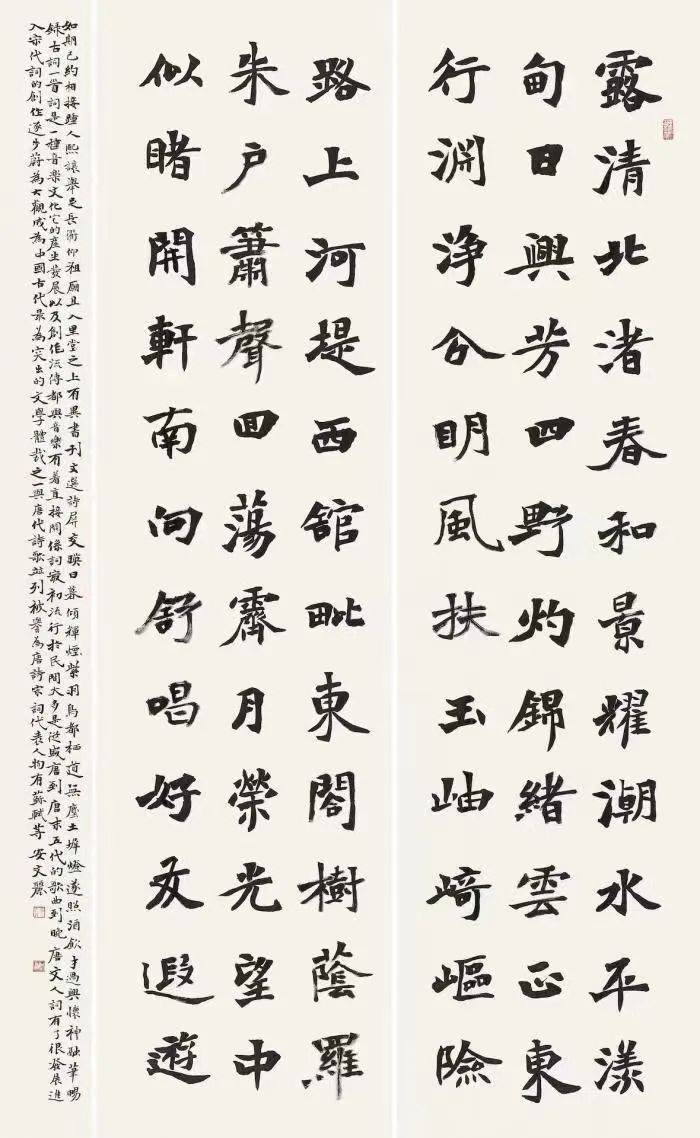 露清北渚春和景耀潮水平漾
甸日興芳四野灼錦緒雲正東
行淵淨分明風扶玉岫崎嶇險
路上河堤西館毗東閣樹蔭羅
朱户簫聲回蕩霽月榮光望中
似睹開軒南向舒唱好友遐遊
如期已約相接踵人熙攘舉足長衢仰祖廟且入里堂之上有異書刊文選詩屏交映日暮傾輝煙紫羽鳥都栖道無塵土墀燈遂照酒飲才過興懷神融筆暢
録古詞一首詞是一種音樂文化它的産生發展以及創作流傳都與音樂有着直接關係詞最初流行於民間大多是從盛唐到唐末五代的歌曲到晚唐文人詞有了很發展進
入宋代詞的創作逐步蔚為大觀成為中國古代最為突出的文學體裁之一與唐代詩歌並列被譽為唐詩宋詞代表人物有蘇軾等 安文麗